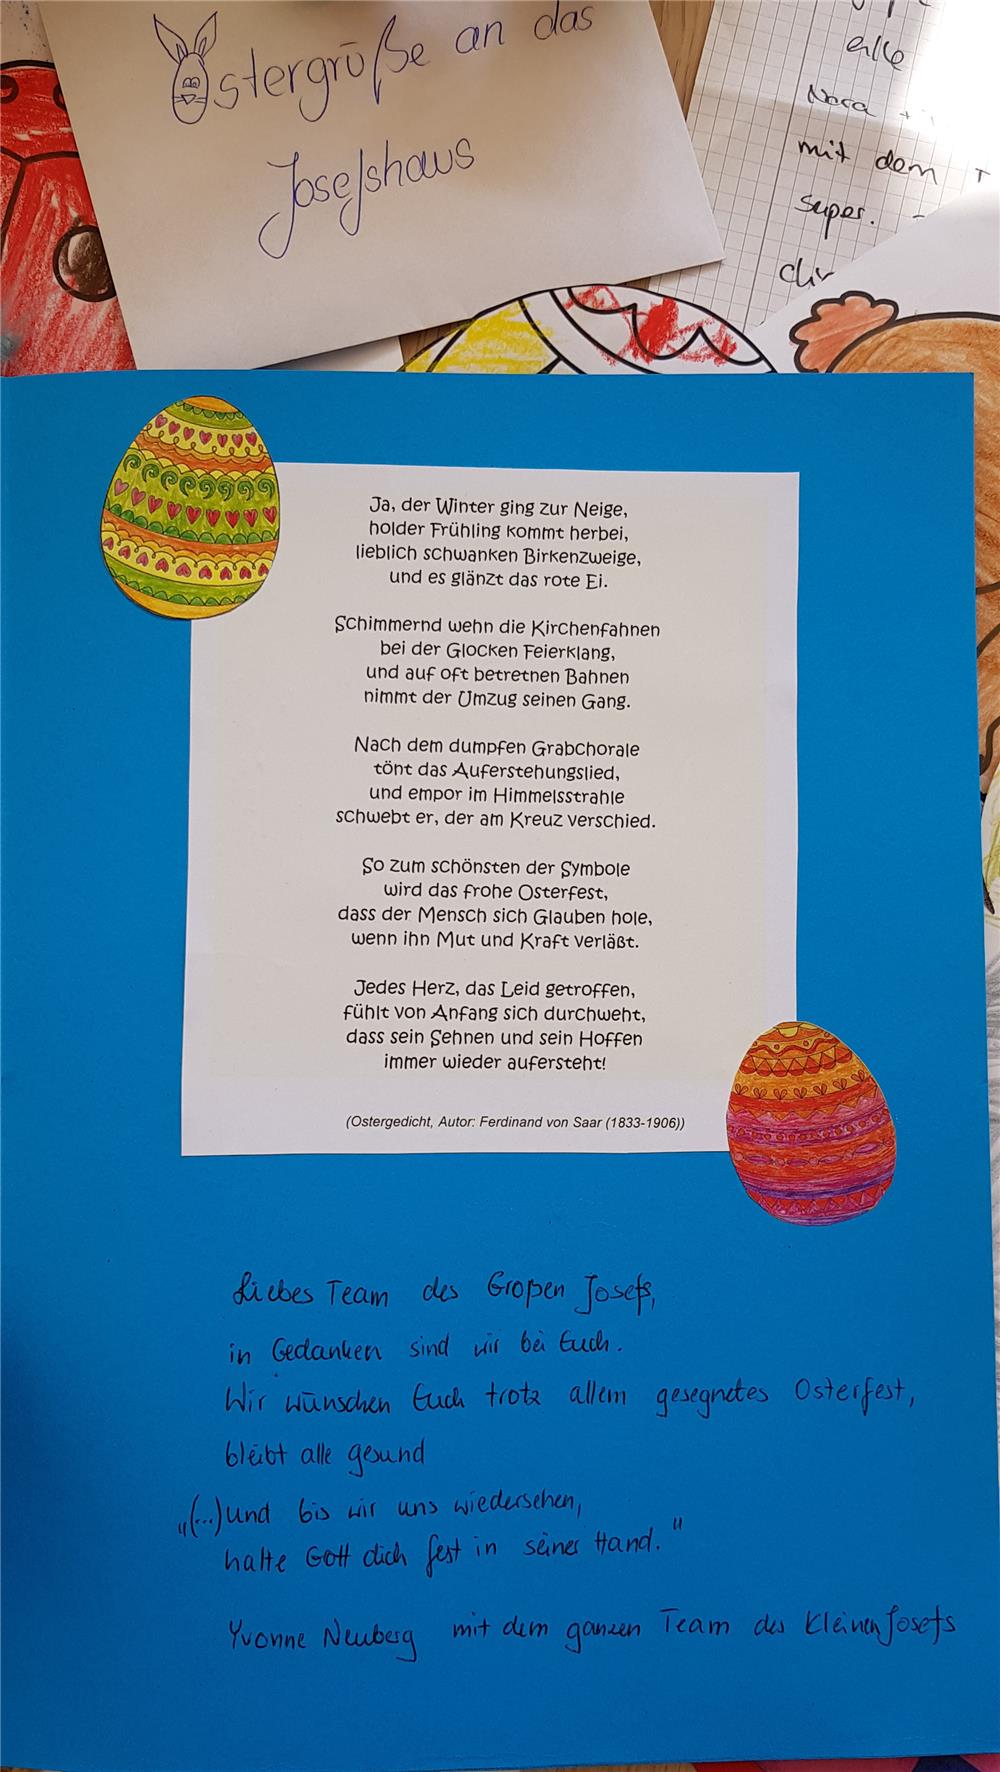 Ostergrüße an das
Josefshaus
alle
Nora
mit dem
super.
Ja, der Winter ging zur Neige,
holder Frühling kommt herbei,
lieblich schwanken Birkenzweige,
und es glänzt das rote Ei.
Schimmernd wehn die Kirchenfahnen
bei der Glocken Feierklang,
und auf oft betretnen Bahnen
nimmt der Umzug seinen Gang.
Nach dem dumpfen Grabchorale
tönt das Auferstehungslied,
und empor im Himmelsstrahle
schwebt er, der am Kreuz verschied.
So zum schönsten der Symbole
wird das frohe Osterfest,
dass der Mensch sich Glauben hole,
wenn ihn Mut und Kraft verläßt.
Jedes Herz, das Leid getroffen,
fühlt von Anfang sich durchweht,
dass sein Sehnen und sein Hoffen
immer wieder aufersteht!
(Ostergedicht, Autor: Ferdinand von Saar (1833-1906))
Liebes Team des Großen Josefs,
in Gedanken sind wir bei Euch.
Wir wünschen Euch trotz allem gesegnetes Osterfest,
bleibt alle gesund
„(...) und bis wir uns wiedersehen,
halte Gott dich fest in seiner Hand."
Yvonne Neuberg mit dem ganzen Team des Kleinen Josefs